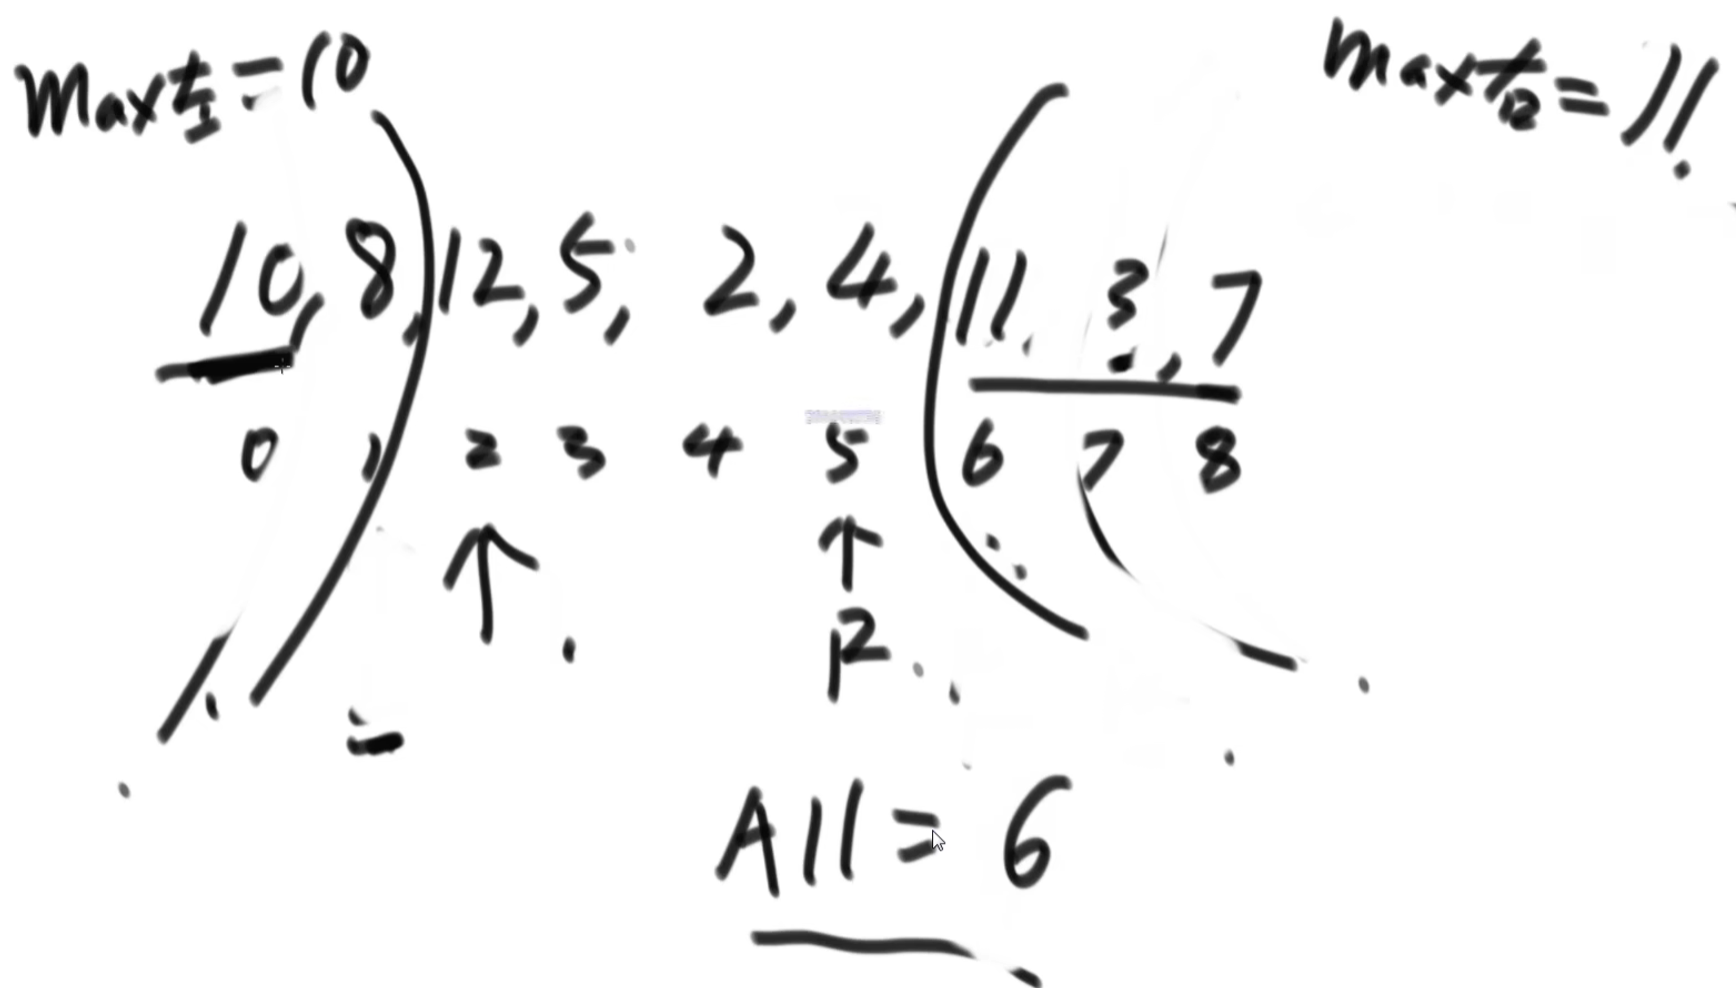 Max左=10
max右=11
10,8,12,5,2,4,11,3,7
0 1 2 3 4 5 6 7 8
R
All=6